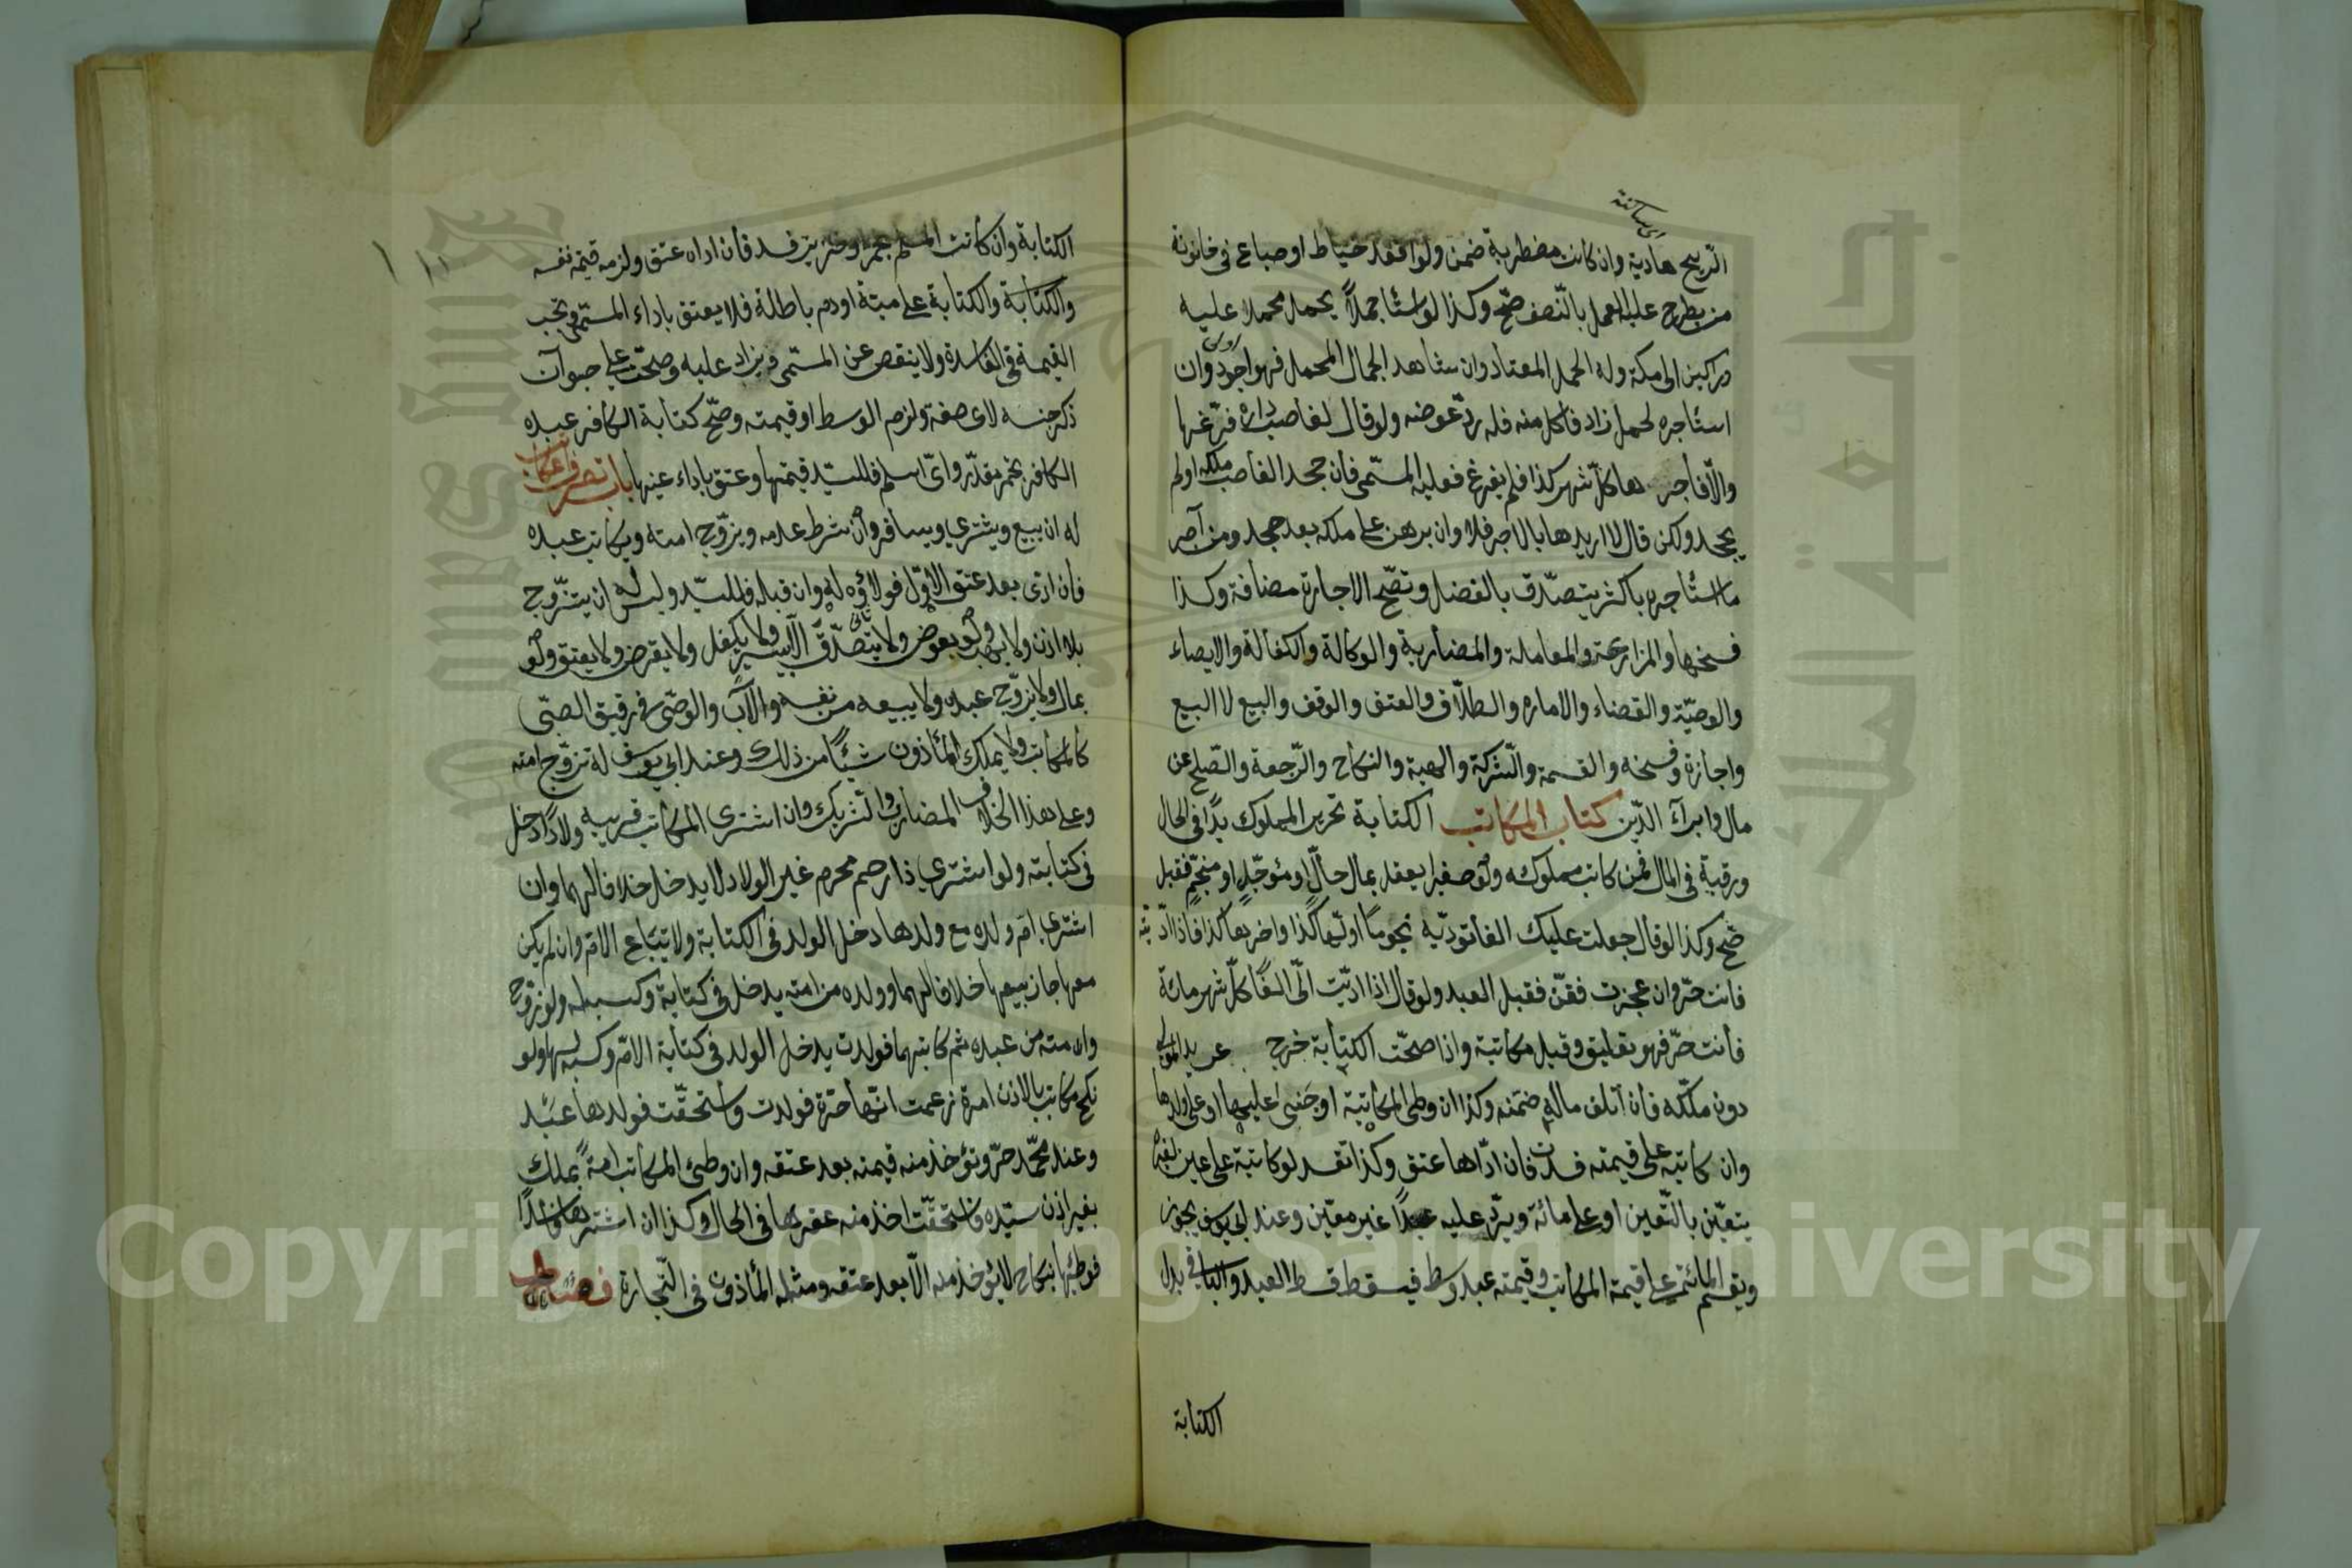 اى ساكنة
الريح هادية وان كانت مضطربة ضمن ولو اقعد خياط او صباغ فى حانوته
من يطرح عليه العمل بالنّصف صحّ وكذا لو استأجر جملاً يحمل محملا عليه
وراكبين الى مكة وله الحمل المعتاد وان شاهد الجمال المحمل فهو اجود وان
استأجره لحمل زاد فاكل منه فله ردّ عوضه ولو قال لغاصب داره فرّغها
والّا فأجرتها كلّ شهر كذا فلم يفرغ فعليه المسمّى فان جحد الغاصب ملكه اولم
يجحد ولكن قال لا اريدها بالاجر فلا وان برهن على ملكه بعد جحد ومن آجر
ما استأجره باكثر يتصدّق بالفضل وتصّح الاجارة مضافة وكذا
فسخها والمزارعة والمعاملة والمضاربة والوكالة والكفالة والايصاء
والوصيّة والقضاء والاماره والطلاق والعتق والوقف والبيع لا البيع
واجازة وفسخه والقسمة والشركة والهبة والنكاح والرّجعة والصّلح عن
مال وابرآء الدّين كتاب المكاتب الكتابة تحرير المملوك يدًا فى الحال
ورقبة فى المال فمن كاتب مملوكه ولو صغيرا يعقل بمال حالّ او مؤجّل او منجّم فقبل
صّح وكذا لو قال جعلت عليك الفا تودّيه نجومًا اوليها كذا واخرها كذا فاذا ادّيته
فانت حرّ وان عجزت فقنّ فقبل العبد ولو قال اذا ادّيت الىّ الفًا كلّ شهر مائة
فأنت حرّ فهو تعليق وقيل مكاتبة واذا صحّت الكتابة خرج عن يد المولى
دون ملكه فان اتلف ماله ضمنه وكذا ان وطى المكاتبة او جنى عليها او على ولدها
وان كاتبه على قيمته فسدت فان ادّاها عتق وكذا تفسد لو كاتبه على عين لغيره
يتعيّن بالتّعين او على مائة ويردّ عليه عبدًا غير معيّن وعند ابى يوسف يجوز
ويقسم المائة على قيمة المكاتب وقيمة عبد وسط فيسقط قسط العبد والباقى بدل
الكتابة
الكتابة وان كاتب المسلم بخمر او خنزير فسد فان اداه عتق ولزمه قيمة نفسه
والكتابة والكتابة على ميتة اودم باطلة فلا يعتق باداء المسمّى وتجب
القيمة فى الفاسدة ولا ينقص عن المسمّى ويزاد عليه وصحّت على حيوان
ذكر جنسه لا صفته ولزم الوسط او قيمته وصّح كتابة الكافر عبده
الكافر بخمر مقدّر واىّ اسلم فللسّيد قيمتها وعتق باداء عينها باب تصرف المكاتب
له ان يبيع ويشتري ويسافر وان شرط عدمه ويزوّج امته ويكاتب عبده
فان ادّى بعد عتق الاوّل فولاؤه له وان قبله فللسّيد وليس له ان يتزوّج
بلا اذن ولا يهب ولو بعوض ولا يتصدّق الّا بيسير ولا يكفل ولا يقرض ولا يعتق ولو
بمال ولا يزوّج عبده ولا يبيعه من نفسه والأب والوصّى فى رقيق الصبّى
كالمكاتب ولا يملك المأذون شيئًا من ذلك وعند ابى يوسف له تزوّج امته
وعلى هذا الخلاف المضارب والشريك وان اشترى المكاتب قريبه ولادًا دخل
فى كتابته ولو اشترى ذا رحم محرم غير الولاد لا يدخل خلافا لهما وان
اشترى امّ ولده مع ولدها دخل الولد فى الكتابة ولا تباع الامّ وان لم يكن
معها جاز بيعها خلافا لهما وولده من امته يدخل فى كتابة وكسبه له ولو زوّج
وامته من عبده ثم كاتبهما فولدت يدخل الولد فى كتابة الامّ وكسبه لها ولو
نكح مكاتب بالاذن امرة زعمت انّها حرّة فولدت واستحقّت فولدها عبد
وعند محمّد حرّ وتؤخذ منه قيمته بعد عتقه وان وطئ المكاتب امة بملك
بغير اذن سيّده فاستحقّت اخذ منه عقرها فى الحال وكذا ان اشتراها فاسدًا
فوطئها بنكاح لا يؤخذ منه الّا بعد عتقه ومثله المأذون فى التّجارة فصل
Copyright © King Saud University
جامعة الملك سعود
King Saud